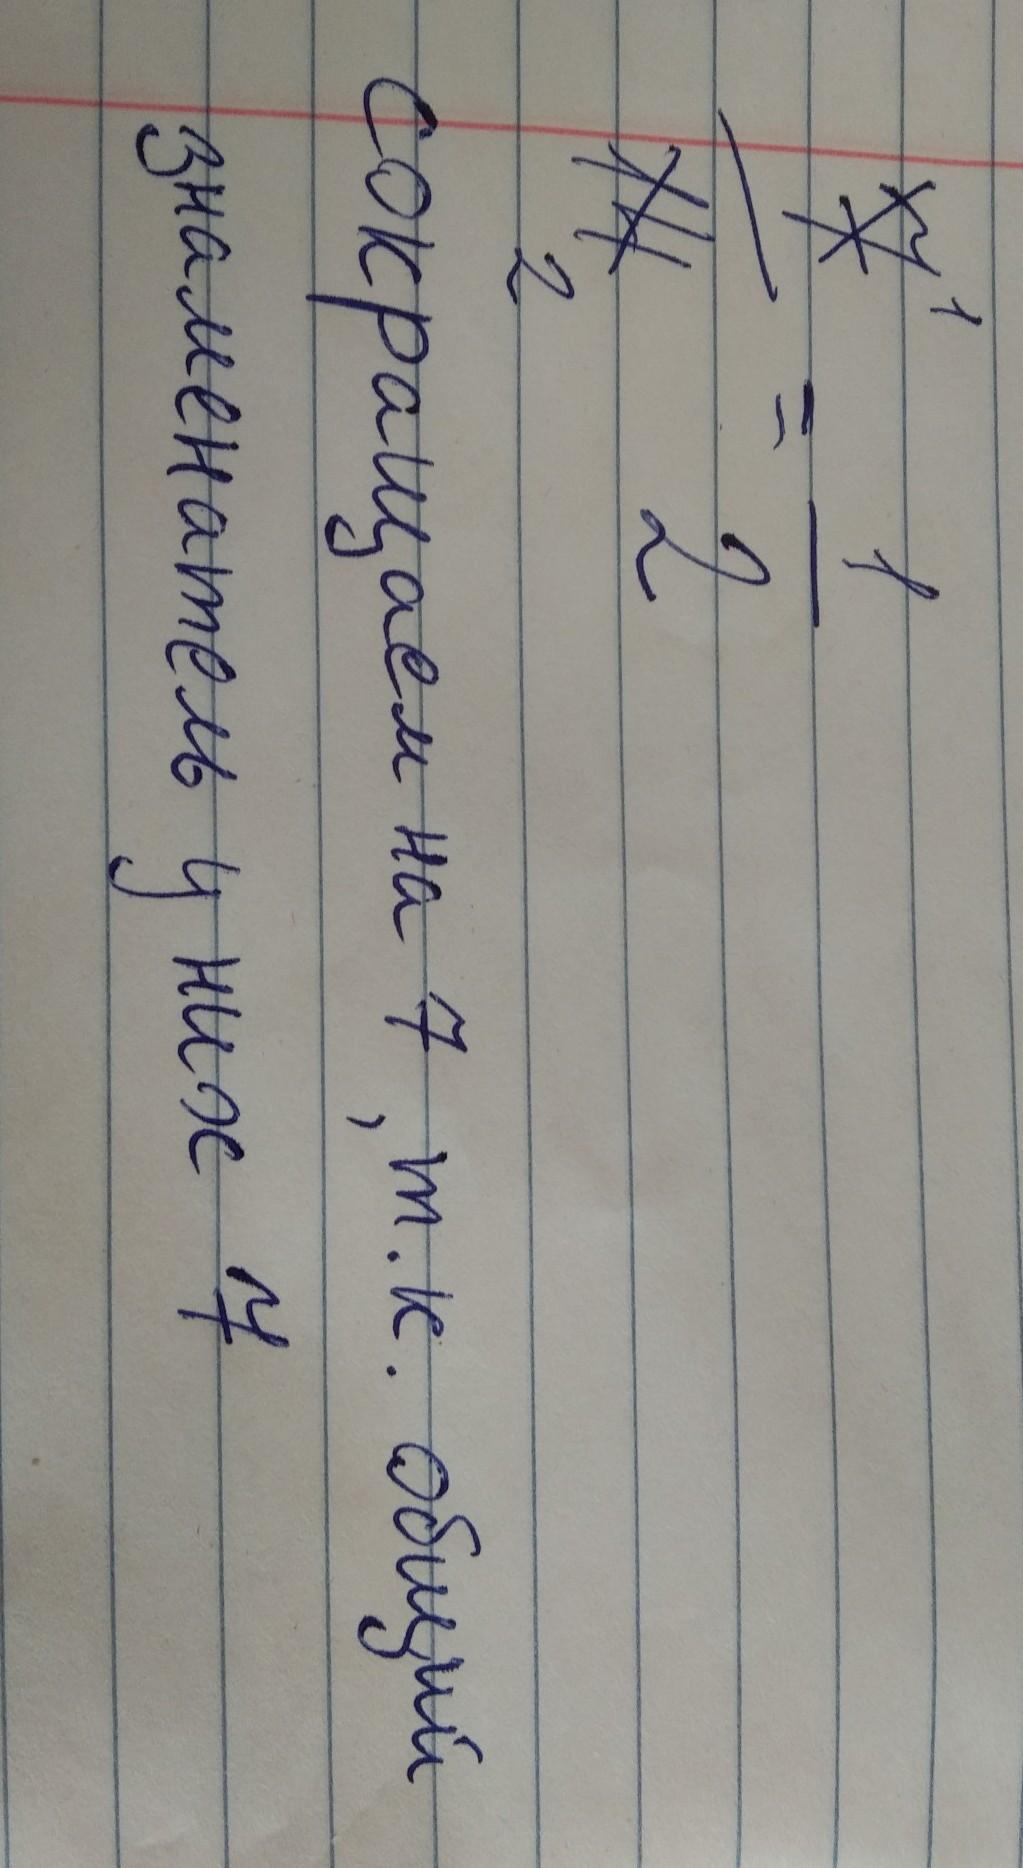 7 1
— = —
14 2
1
2
Сокращаем на 7, т.к. общий
знаменатель у них 7